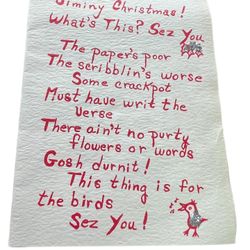 Jiminy Christmas!
What's This? Sez You
The paper's poor
The scribblin's worse
Some crackpot
Must have writ the
Verse
There ain't no purty
flowers or words
Gosh durnit!
This thing is for
the birds
Sez You!